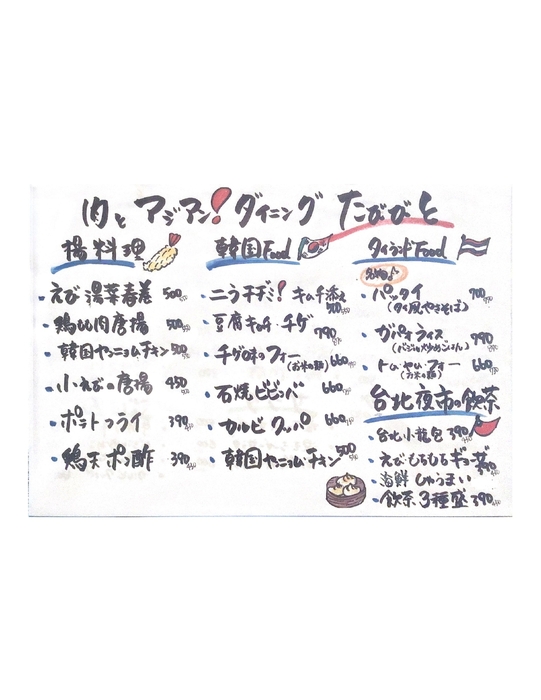 肉とアジアン!ダイニング たびびと
揚料理
・えび湯葉春巻 500
・鶏もも肉唐揚 500
・韓国ヤンニョムチキン 500
・小えびの唐揚 450
・ポテトフライ 390
・鶏天ポン酢 390
韓国Food
・ニラチヂミ! キムチ添え 500
・豆腐キムチ・チゲ 790
・チゲ味のフォー (お米の麺) 660
・石焼ビビンバ 660
・カルビクッパ 660
・韓国ヤンニョムチキン 500
タイランドFood
・パッタイ 700
(タイ風やきそば)
・ガパオライス 790
(バジル炒めごはん)
・トムヤムフォー 660
(お米の麺)
台北夜市の飲茶
・台北小龍包 390
・えびもちもちギョーザ 390
・海鮮しゅうまい
・飲茶3種盛 390